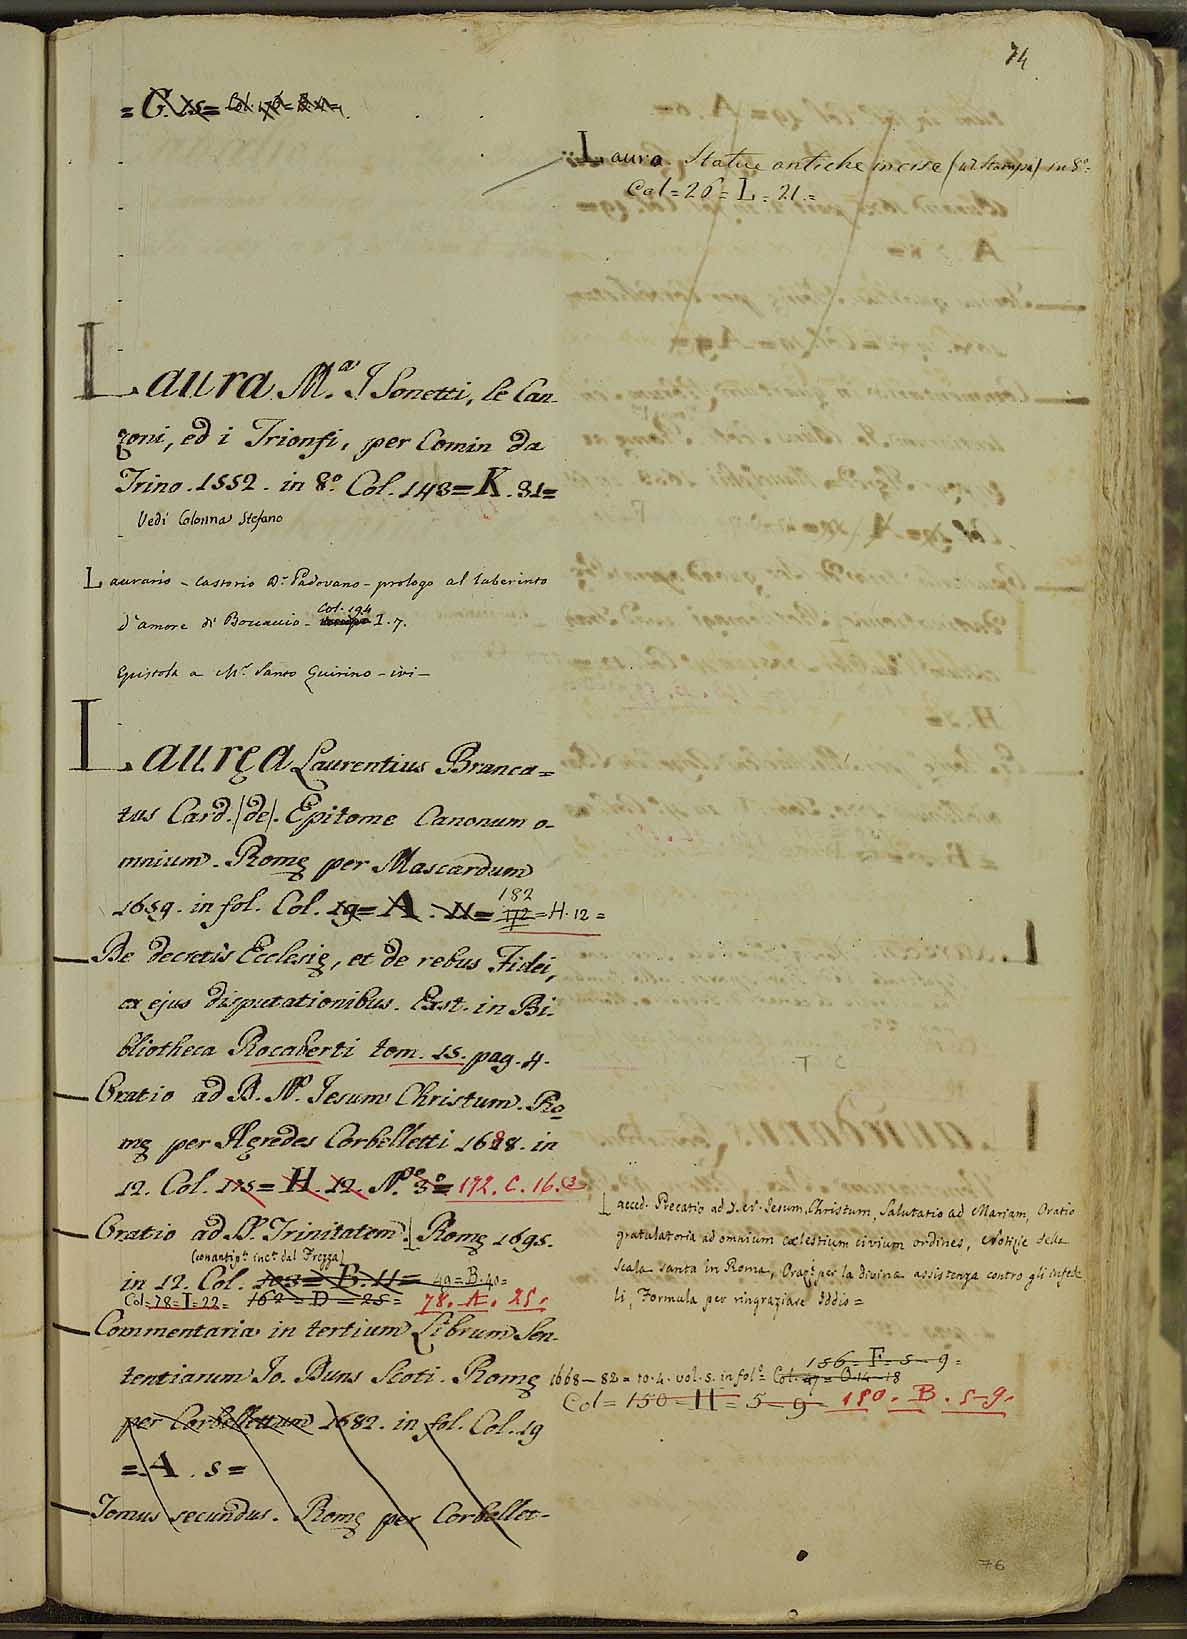 74
= G. 15 = Col. 176 =
Laura. Statue antiche incise (ad Stampa) in 8.°
Col = 26 = L = 21. =
Laura M.ª I Sonetti, le Can-
zoni, ed i Trionfi, per Comin da
Trino. 1552. in 8.° Col. 148 = K. 31 =
Vedi Colonna Stefano
Laurario - Castorio D.r Padovano - prologo al laberinto
d'amore di Boccaccio - Col. 194 I. 7.
Epistola a M.r Santo Quirino - ivi -
Laurea Laurentius Branca=
tus Card. (de). Epitome Canonum o-
mnium. Romę per Mascardum
1659. in fol. Col. 19 = A. 11 = 182 112 = H. 12 =
De decretis Ecclesię, et de rebus Fidei,
ex ejus disputationibus. Ext. in Bi-
bliotheca Rocaberti tom. 15. pag. 4.
Oratio ad D. N. Jesum Christum. Ro
mę per Hęredes Corbelletti 1688. in
12. Col. 175 = H. 12. N.° 3° = 172. C. 16.
Oratio ad SS. Trinitatem. Romę 1695.
in 12. Col. 103 = B. 11 = 40 = B. 40 =
Col = 78 = I = 22 = 162 = D = 25 = 78. A. 25.
acced. Precatio ad D. N. Jesum Christum, Salutatio ad Mariam, Oratio
gratulatoria ad omnium cælestium civium ordines, Notizie della
Scala Santa in Roma, Oraz.e per la divina assistenza contro gli infede
li, Formula per ringraziare Iddio =
Commentaria in tertium Librum Sen-
tentiarum Jo. Duns Scoti. Romę 1668 - 82 = to. 4. vol. 5. in fol.° Col. 47 = O. 14 - 18
156 = F = 5 - 9 =
Col = 150 = H = 5 - 9 - 180. B. 5-9.
per Corbellettum 1682. in fol. Col. 19
= A. 5 =
Tomus secundus. Romę per Corbellet-
76